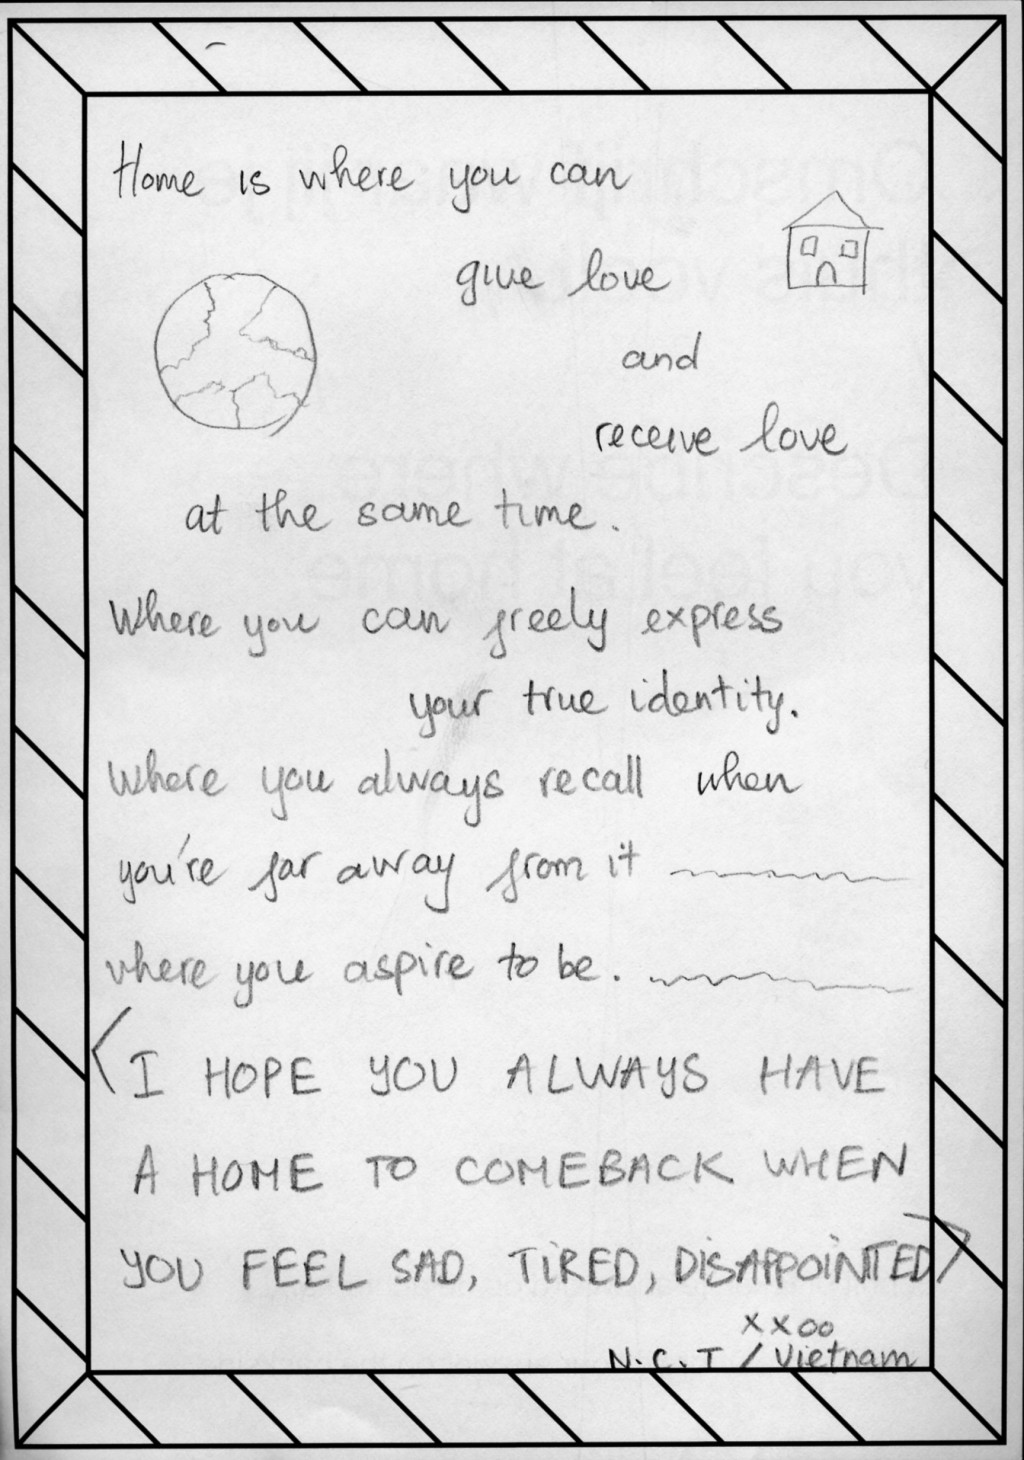 Home is where you can
give love
and
receive love
at the same time.
Where you can freely express
your true identity.
Where you always recall when
you're far away from it
where you aspire to be.
<I HOPE YOU ALWAYS HAVE
A HOME TO COMEBACK WHEN
YOU FEEL SAD, TIRED, DISAPPOINTED>
xxoo
N.C.T / Vietnam